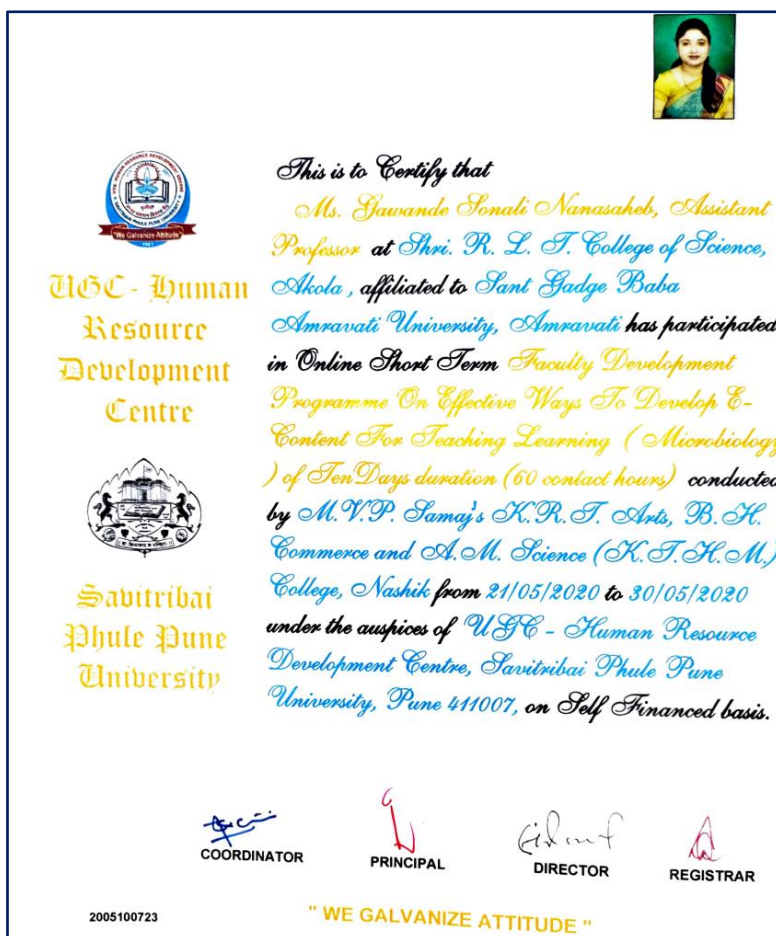 UGC HUMAN RESOURCE DEVELOPMENT CENTRE
SAVITRIBAI PHULE PUNE UNIVERSITY
"We Galvanize Attitude"
UGC - Human
Resource
Development
Centre
Savitribai
Phule Pune
University
This is to Certify that
Ms. Gawande Sonali Nanasaheb, Assistant
Professor at Shri. R. L. T. College of Science,
Akola , affiliated to Sant Gadge Baba
Amravati University, Amravati has participated
in Online Short Term Faculty Development
Programme On Effective Ways To Develop E-
Content For Teaching Learning ( Microbiology
) of Ten Days duration (60 contact hours) conducted
by M.V.P. Samaj's K.R.T. Arts, B.H.
Commerce and A.M. Science (K.T.H.M.)
College, Nashik from 21/05/2020 to 30/05/2020
under the auspices of UGC - Human Resource
Development Centre, Savitribai Phule Pune
University, Pune 411007, on Self Financed basis.
COORDINATOR
PRINCIPAL
DIRECTOR
REGISTRAR
2005100723
" WE GALVANIZE ATTITUDE "